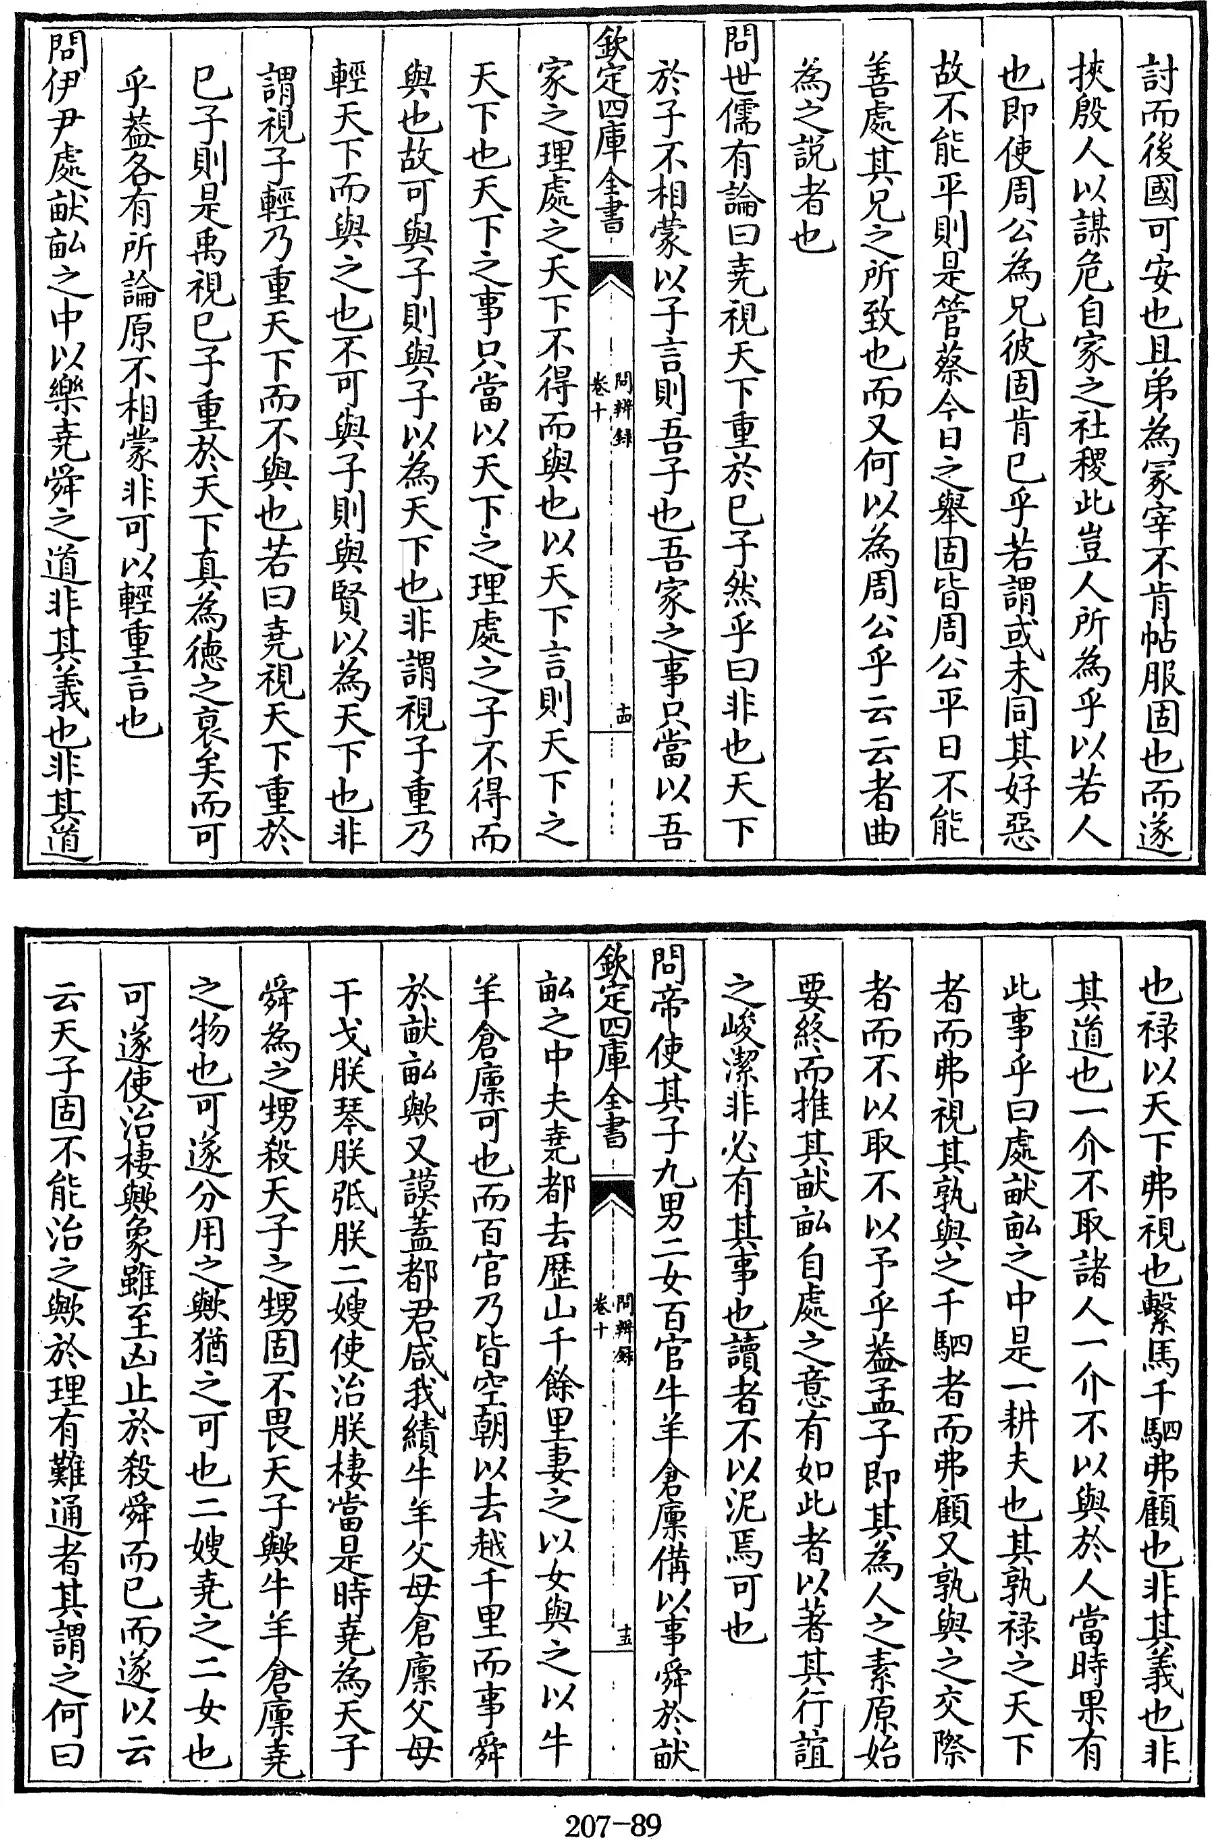 討而後國可安也且弟為冡宰不肯帖服固也而遂
挾殷人以謀危自家之社稷此豈人所為乎以若人
也即使周公為兄彼固肯已乎若謂或未同其好惡
故不能平則是管蔡今日之舉固皆周公平日不能
善處其兄之所致也而又何以為周公乎云云者曲
為之説者也
問世儒有論曰堯視天下重於已子然乎曰非也天下
於子不相蒙以子言則吾子也吾家之事只當以吾
欽定四庫全書
問辨録
卷十
十四
家之理處之天下不得而與也以天下言則天下之
天下也天下之事只當以天下之理處之子不得而
與也故可與子則與子以為天下也非謂視子重乃
輕天下而與之也不可與子則與賢以為天下也非
謂視子輕乃重天下而不與也若曰堯視天下重於
已子則是禹視已子重於天下真為徳之衰矣而可
乎葢各有所論原不相蒙非可以輕重言也
問伊尹處畎畝之中以樂堯舜之道非其義也非其道
也禄以天下弗視也繫馬千駟弗顧也非其義也非
其道也一介不取諸人一介不以與於人當時果有
此事乎曰處畎畝之中是一耕夫也其孰禄之天下
者而弗視其孰與之千駟者而弗顧又孰與之交際
者而不以取不以予乎葢孟子即其為人之素原始
要終而推其畎畝自處之意有如此者以著其行誼
之峻潔非必有其事也讀者不以泥焉可也
問帝使其子九男二女百官牛羊倉廩備以事舜於畎
欽定四庫全書
問辨録
卷十
十五
畝之中夫堯都去歴山千餘里妻之以女與之以牛
羊倉廩可也而百官乃皆空朝以去越千里而事舜
於畎畝歟又謨蓋都君咸我績牛羊父母倉廩父母
干戈朕琴朕弤朕二嫂使治朕棲當是時堯為天子
舜為之甥殺天子之甥固不畏天子歟牛羊倉廩堯
之物也可遂分用之歟猶之可也二嫂堯之二女也
可遂使治棲歟象雖至凶止於殺舜而已而遂以云
云天子固不能治之歟於理有難通者其謂之何曰
207-89